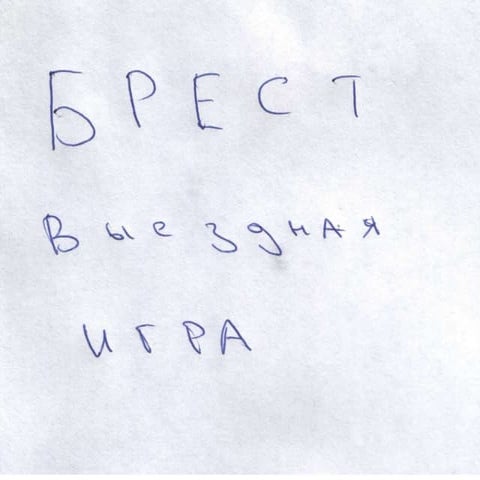 БРЕСТ
Выездная
ИГРА